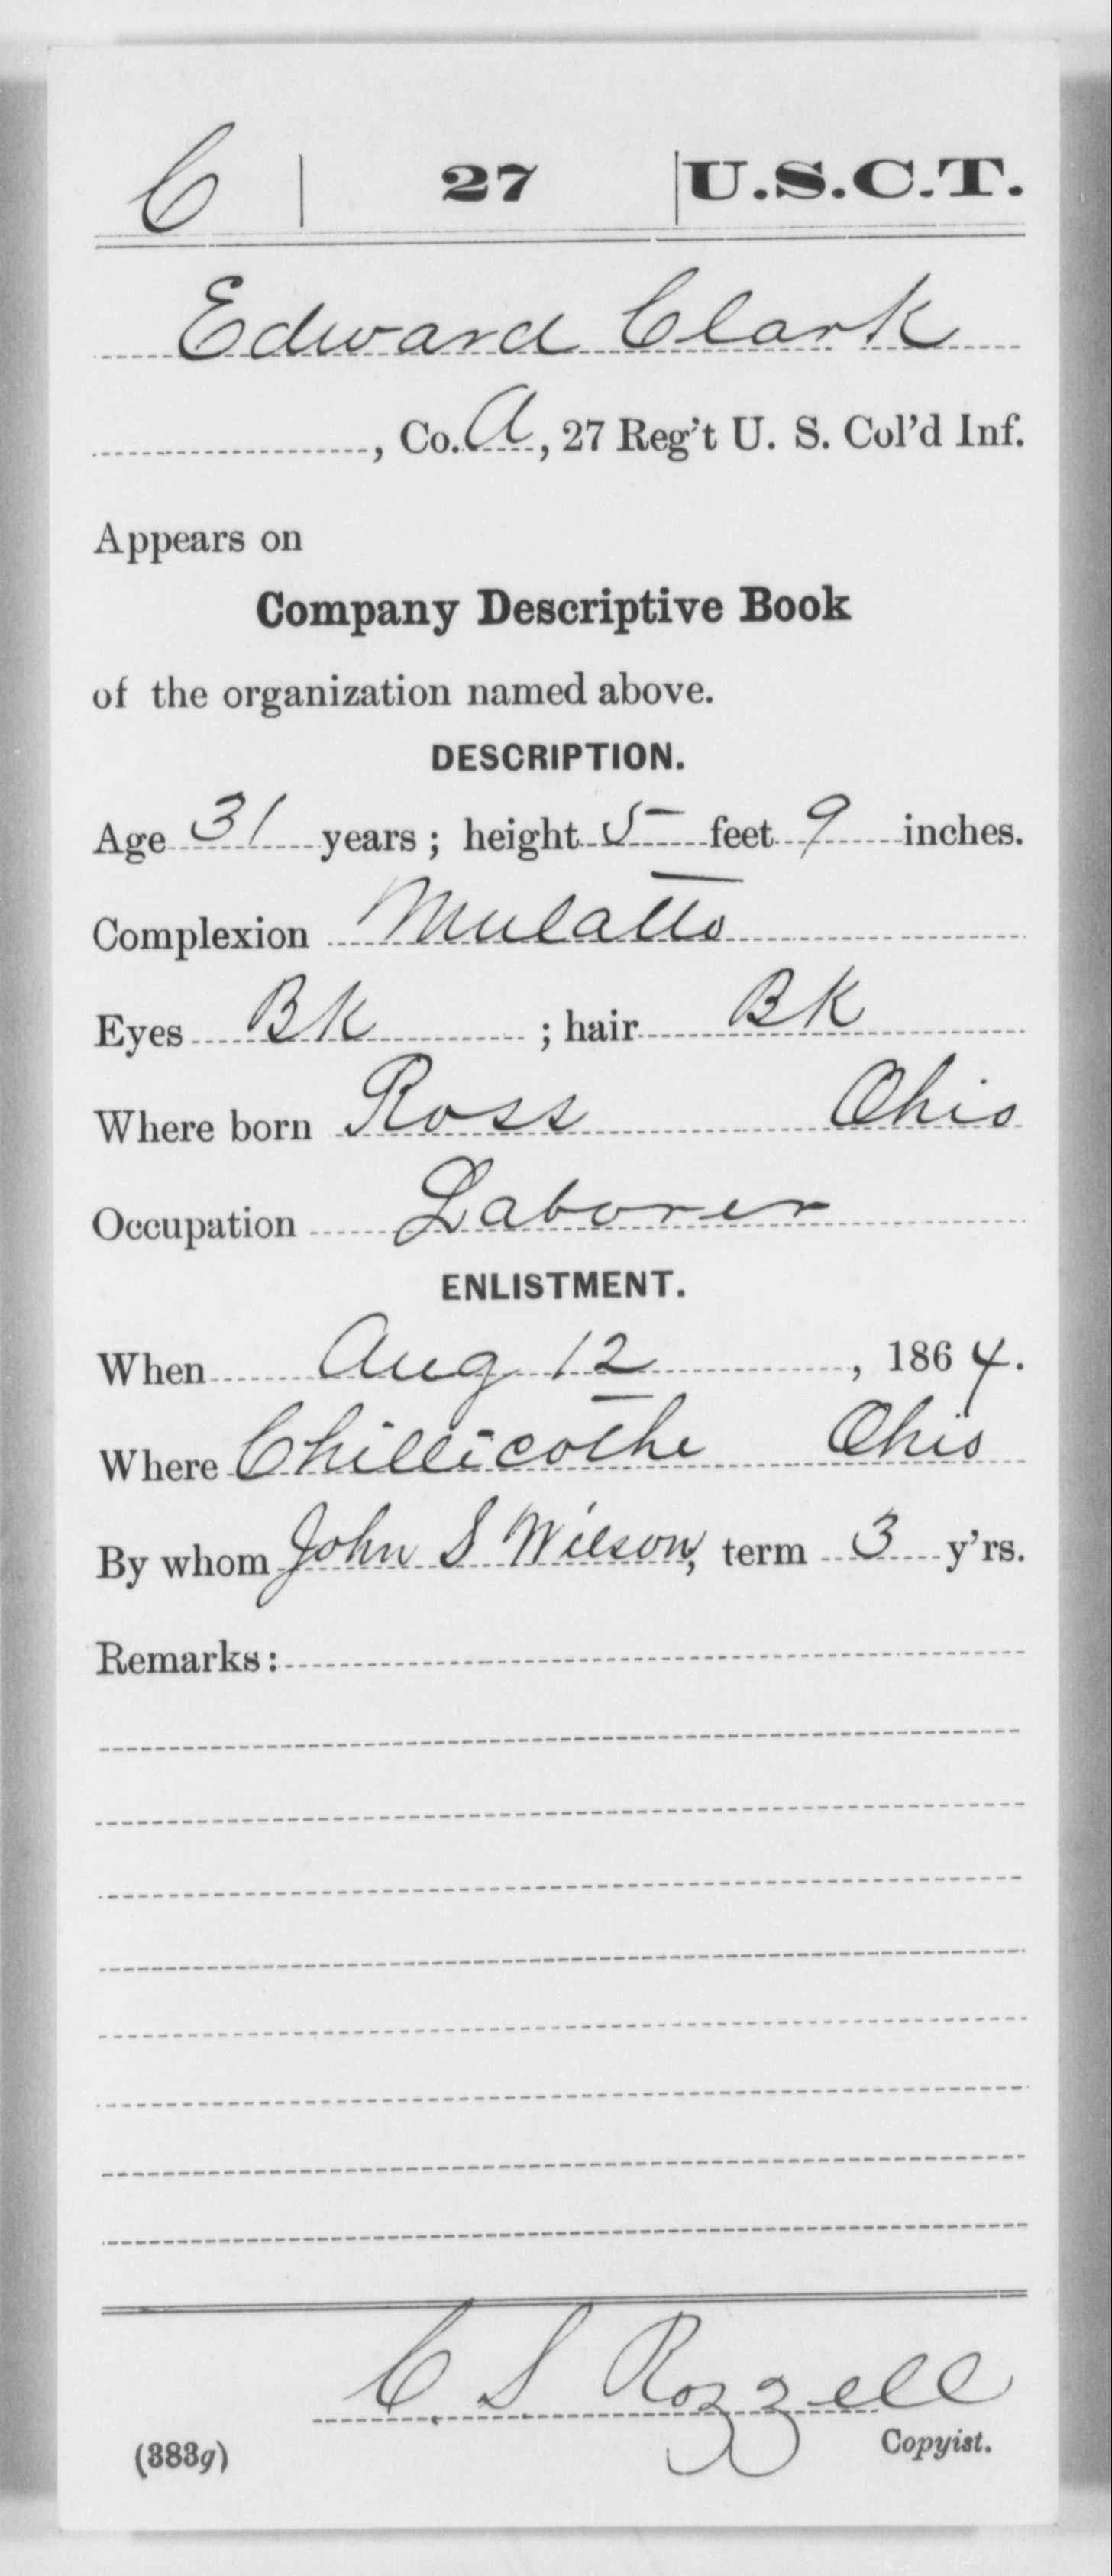 C | 27 | U.S.C.T.
Edward Clark
, Co. A, 27 Reg't U. S. Col'd Inf.
Appears on
Company Descriptive Book
of the organization named above.
DESCRIPTION.
Age 31 years; height 5 feet 9 inches.
Complexion Mulatto
Eyes Bk ; hair Bk
Where born Ross Ohio
Occupation Laborer
ENLISTMENT.
When Aug 12, 1864.
Where Chillicothe Ohio
By whom John S Wilson, term 3 y'rs.
Remarks:
C S Rozzell
(383g) Copyist.